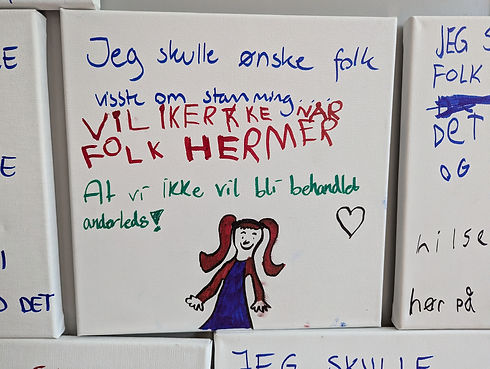 Jeg skulle ønske folk
visste om stamming...
VI LIKER IKKE NÅR
FOLK HERMER
At vi ikke vil bli behandlet
anderleds!
JEG S
FOLK
DET
OG
hilse
hør på
E
E
I
O DET
JEG SKULLE